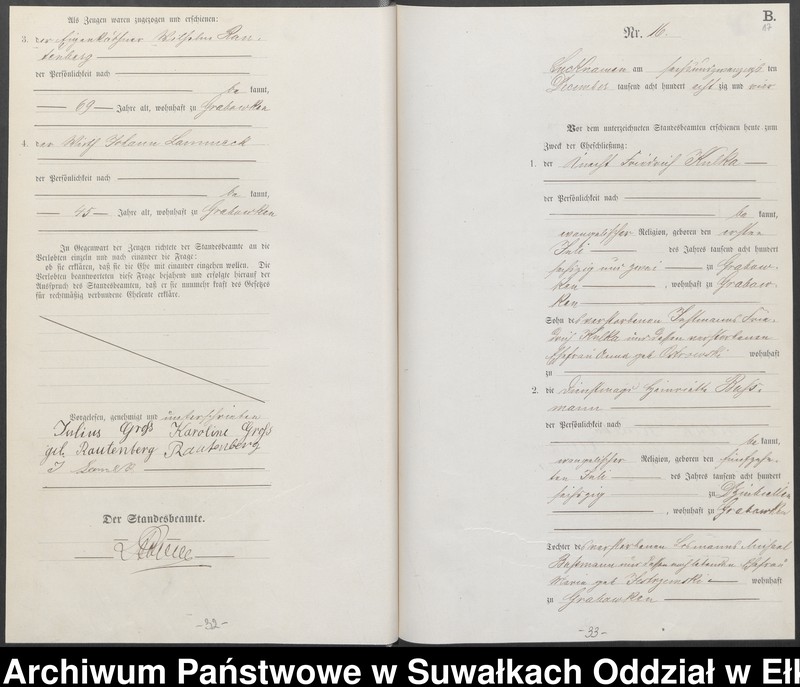 Als Zeugen waren zugezogen und erschienen:
3. der Eigenkäthner Wilhelm Rau-
tenberg
der Persönlichkeit nach
be kannt,
69 Jahre alt, wohnhaft zu Grabowken
4. der Wirth Johann Lammeck
der Persönlichkeit nach
be kannt,
45 Jahre alt, wohnhaft zu Grabowken
In Gegenwart der Zeugen richtete der Standesbeamte an die
Verlobten einzeln und nach einander die Frage:
ob sie erklären, daß sie die Ehe mit einander eingehen wollen. Die
Verlobten beantworteten diese Frage bejahend und erfolgte hierauf der
Ausspruch des Standesbeamten, daß er sie nunmehr kraft des Gesetzes
für rechtmäßig verbundene Eheleute erkläre.
Vorgelesen, genehmigt und unterschrieben
Julius Groß Karoline Groß
geb. Rautenberg Rautenberg
Der Standesbeamte.
-32-
B.
17
Nr. 16.
am sechsundzwanzigsten
December tausend acht hundert acht zig und vier
Vor dem unterzeichneten Standesbeamten erschienen heute zum
Zweck der Eheschließung:
1. der Knecht Friedrich Kulka
der Persönlichkeit nach
be kannt,
evangelischer Religion, geboren den ersten
Juli des Jahres tausend acht hundert
sechszig und zwei zu Grabow-
ken, wohnhaft zu Grabow-
ken
Sohn des verstorbenen Instmanns Frie-
drich Kulka und dessen verstorbenen
Ehefrau Anna geb. wohnhaft
zu
2. die Dienstmagd Heinriette Baß-
mann
der Persönlichkeit nach
be kannt,
evangelischer Religion, geboren den fünfzehn-
ten Juli des Jahres tausend acht hundert
sechszig zu
, wohnhaft zu Grabowken
Tochter des verstorbenen Losmanns Michael
Baßmann und dessen noch lebenden Ehefrau
Maria geb. wohnhaft
zu Grabowken
-33-
Archiwum Państwowe w Suwałkach Oddział w Ełk